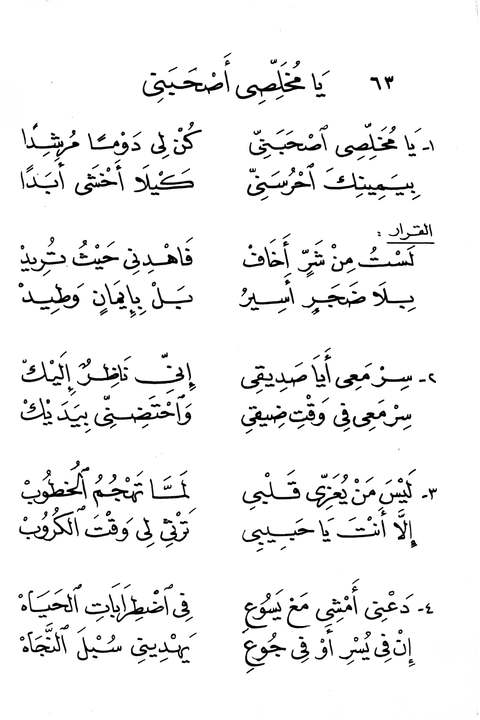 ٦٣ يَا مُخَلِّصِي أَصْحَبَنِي
١- يَا مُخَلِّصِي ٱصْحَبَنِّي كُنْ لِي دَوْمًا مُرشِدًا
بِيَمِينِكَ ٱحْرُسَنِّي كَيْلَا أَخْشَى أَبَدًا
القرار :
لَسْتُ مِنْ شَرٍّ أَخَافْ فَاهْدِنِي حَيْثُ تُرِيدْ
بِلَا ضَجَرٍ أَسِيرُ بَلْ بِإِيمَانٍ وَطِيدْ
٢- سِرْ مَعِي أَيَا صَدِيقِي إِنِّي نَاظِرٌ إِلَيْكْ
سِرْ مَعِي فِي وَقْتِ ضِيقِي وَٱحْتَضِنِّي بِيَدَيْكْ
٣- لَيْسَ مَنْ يُعَزِّي قَلْبِي لَمَّا تَهْجُمُ ٱلْخُطُوبْ
إِلَّا أَنْتَ يَا حَبِيبِي تَرْثِي لِي وَقْتَ ٱلْكُرُوبْ
٤- دَعْنِي أَمْشِي مَعْ يَسُوعِ فِي ٱضْطِرَابَاتِ ٱلْحَيَاهْ
إِنْ فِي يُسْرٍ أَوْ فِي جُوعِ يَهْدِينِي سُبْلَ ٱلنَّجَاهْ